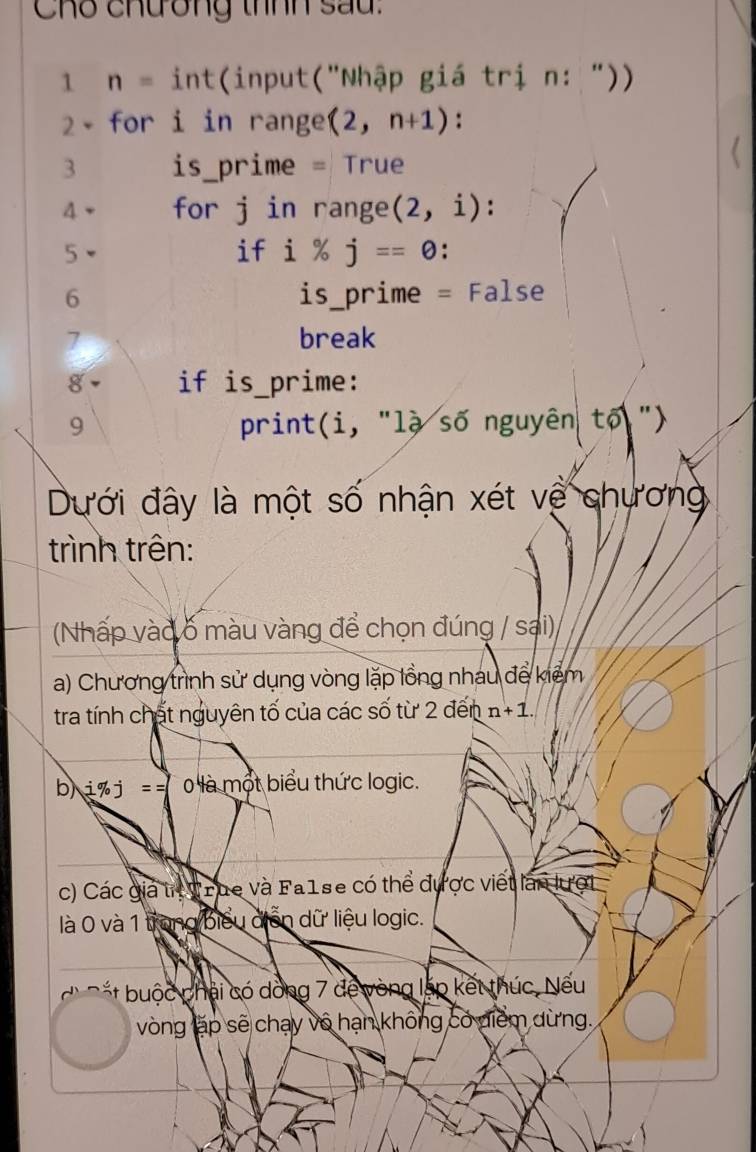 Cho chương trình sau:
1 n = int(input("Nhập giá trị n: "))
2 for i in range(2, n+1):
3 is_prime = True
4 for j in range(2, i):
5 if i % j == 0:
6 is_prime = False
7 break
8 if is_prime:
9 print(i, "là số nguyên tố ")
Dưới đây là một số nhận xét về chương
trình trên:
(Nhấp vào ô màu vàng để chọn đúng / sai)
a) Chương trình sử dụng vòng lặp lồng nhau để kiểm
tra tính chất nguyên tố của các số từ 2 đến n+1.
b) i%j == 0 là một biểu thức logic.
c) Các giá trị True và False có thể được viết lần lượt
là 0 và 1 trong biểu diễn dữ liệu logic.
d) Bắt buộc phải có dòng 7 để vòng lặp kết thúc. Nếu
vòng lặp sẽ chạy vô hạn không có điểm dừng.